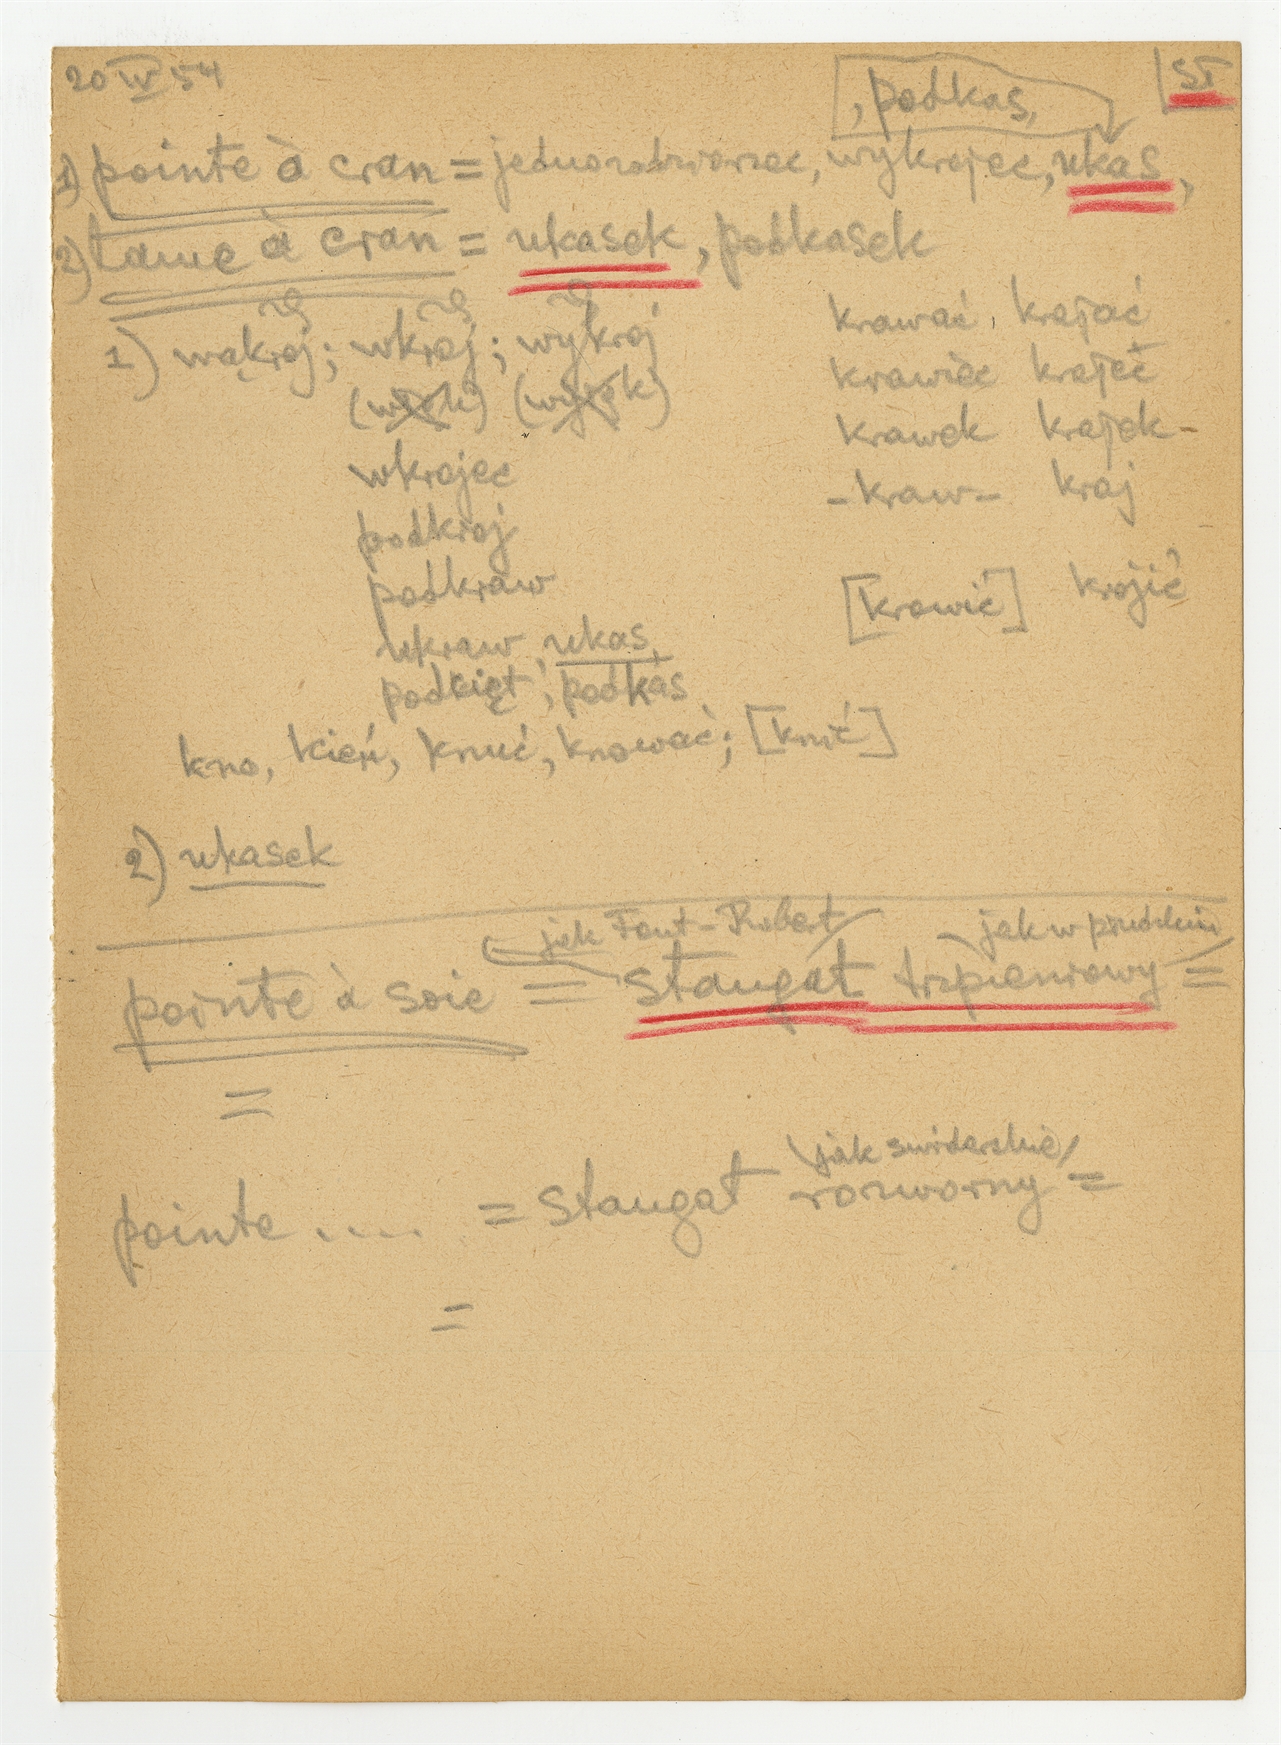 20 IV 54
, podkas,
ST
1) pointe à cran = jednozadziorzec, wykrojec, ukas,
2) lame à cran = ukasek, podkasek
1) wąkroj; wkroj; wykroj
wkrojec
podkroj
podkraw
ukraw, ukas,
podcięt, podkas
kno, kień, knuć, knować; [knić]
krawać, krajać
krawiec krajeć
krawek krajek-
-kraw- kraj
[krowić] krojić
2) ukasek
jak Font-Robert
jak w prudskim
pointe à soie = stangat trzpieniowy =
=
jak świderskie
pointe .... = stangat rozworny =
=